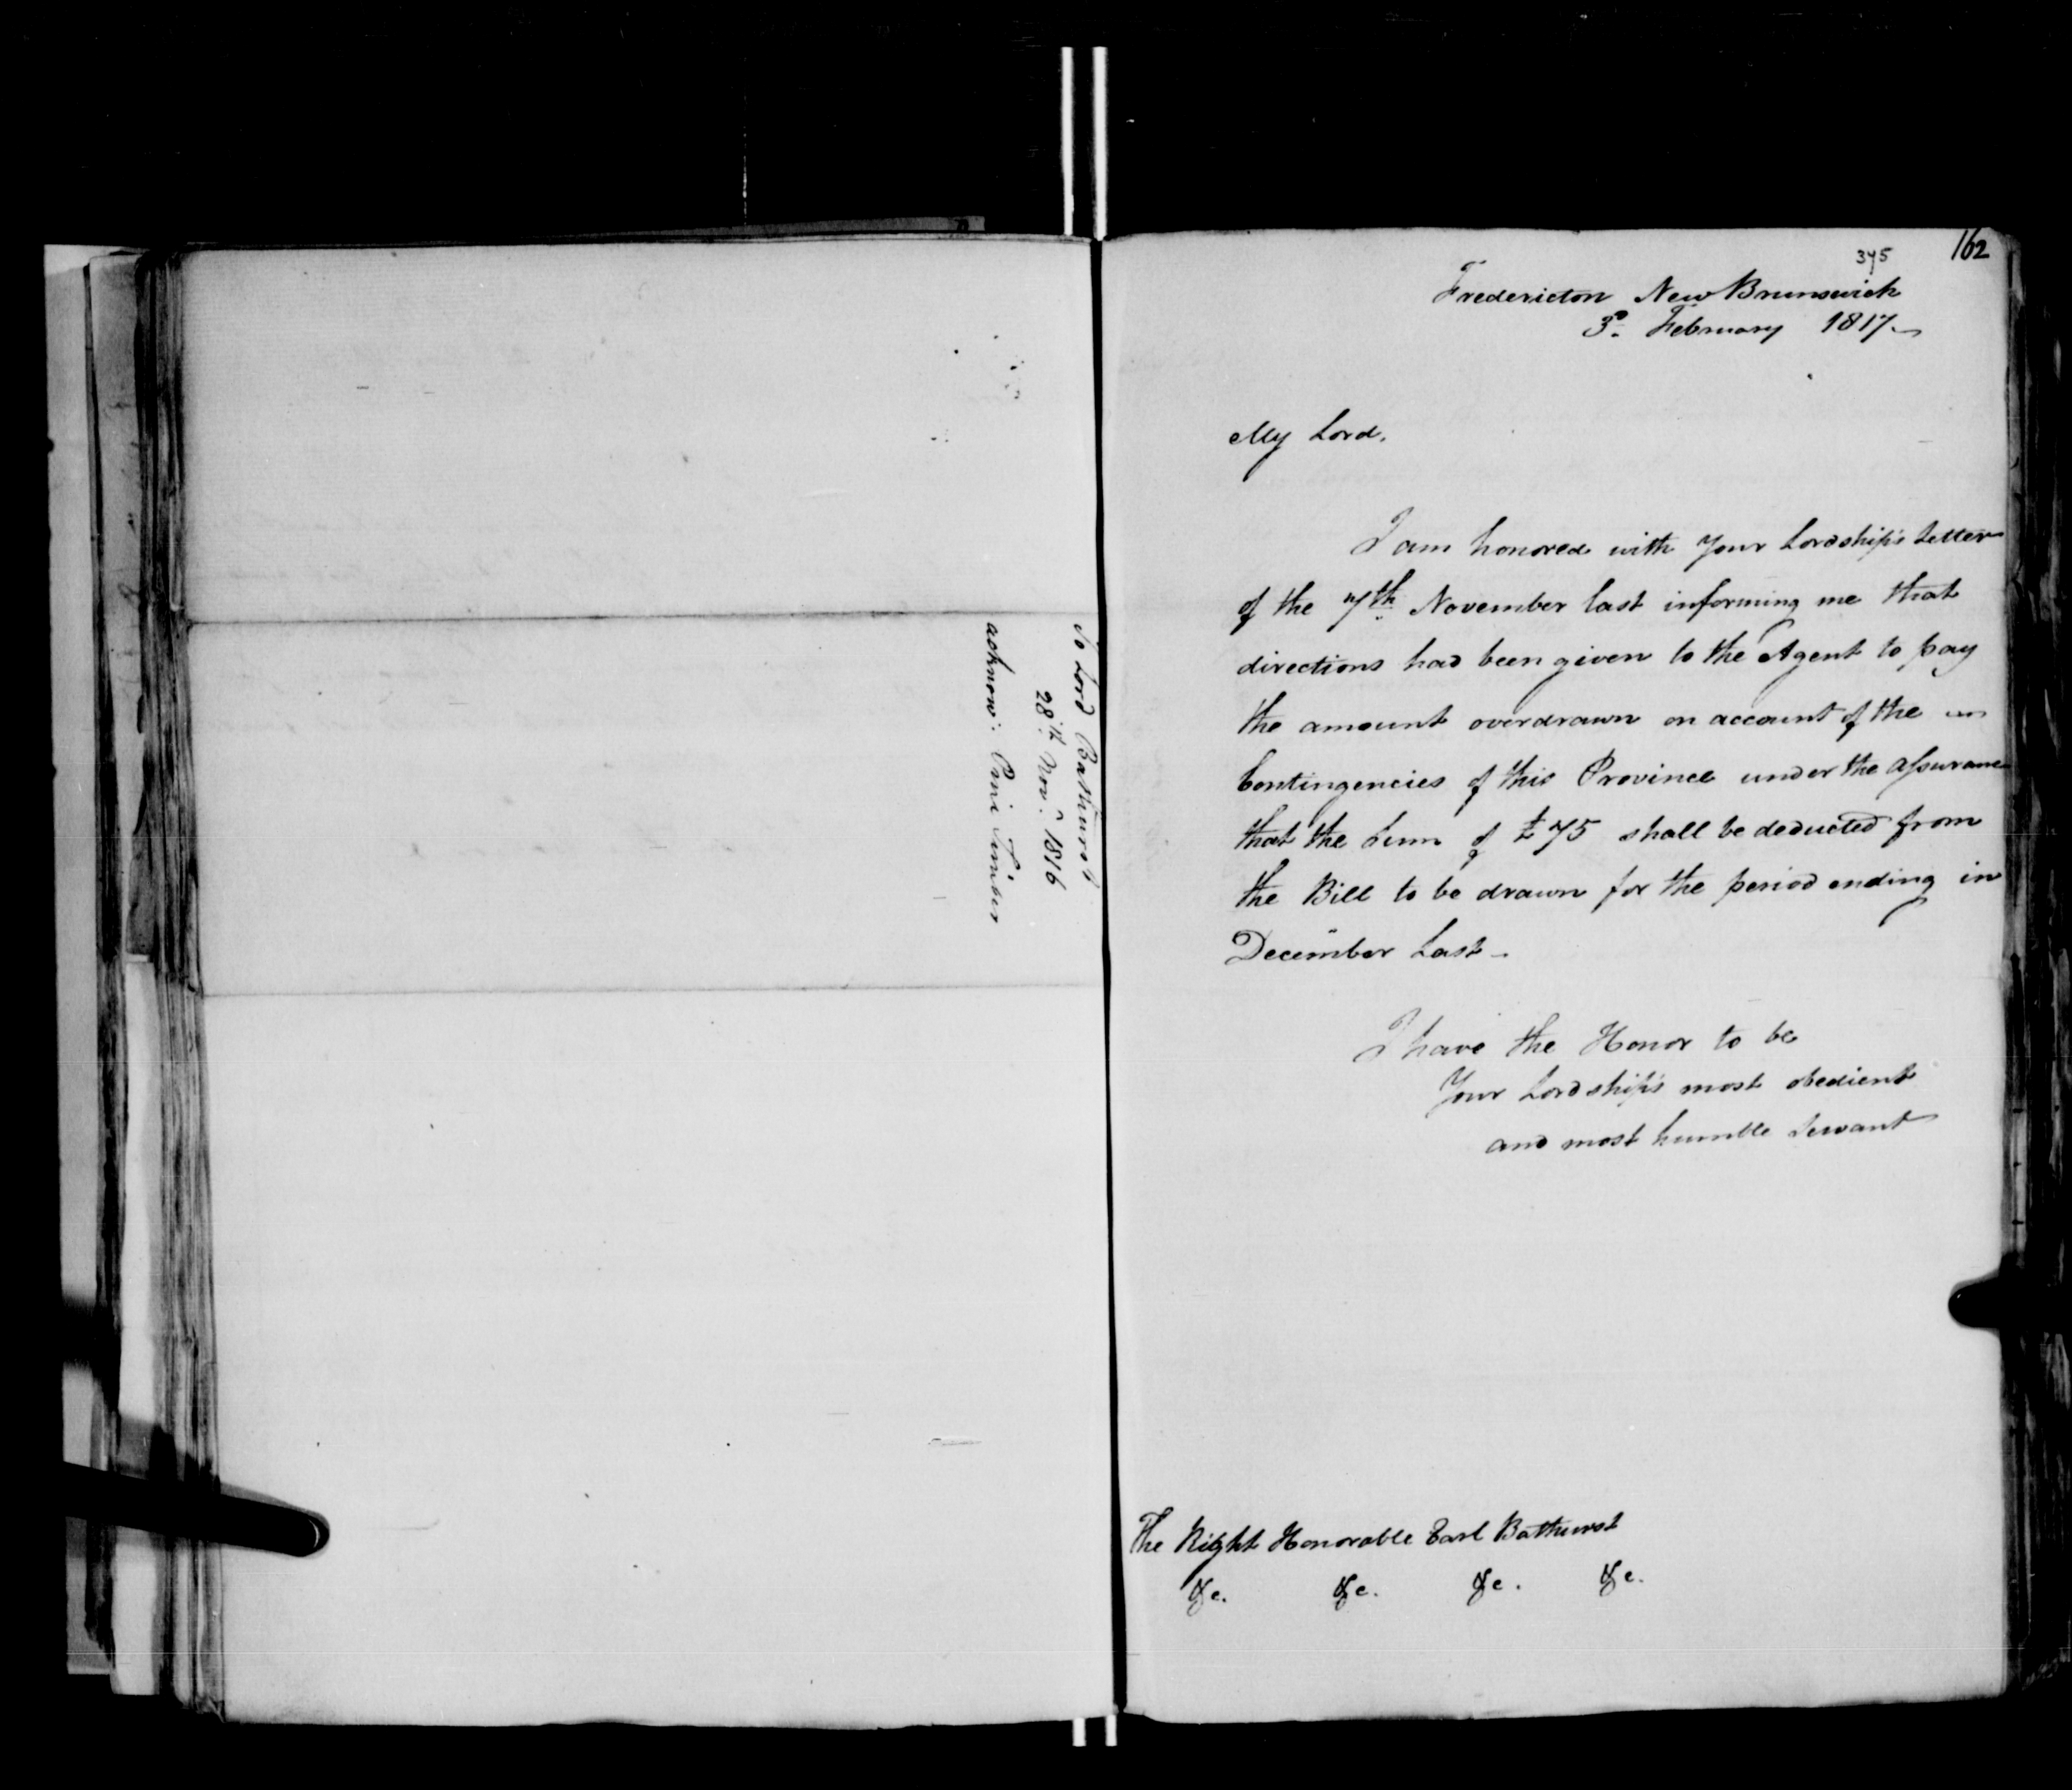 To Lord Bathurst
28th Novr. 1816
acknow:
162
375
Fredericton New Brunswick
3d. February 1817.
My Lord,
I am honored with Your Lordship's Letter
of the 7th November last informing me that
directions had been given to the Agent to pay
the amount overdrawn on account of the
Contingencies of this Province under the assurance
that the Sum of £75 shall be deducted from
the Bill to be drawn for the period ending in
December Last -
I have the Honor to be
Your Lordship's most obedient
and most humble Servant
The Right Honorable Earl Bathurst
&c. &c. &c. &c.